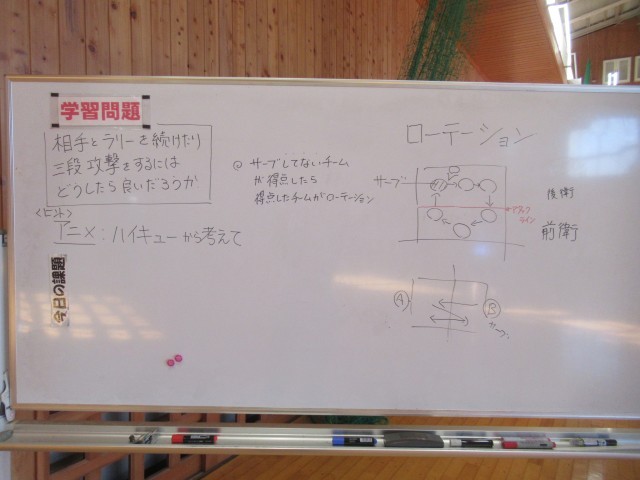 学習問題
相手とラリーを続けたり
三段攻撃をするには
どうしたら良いだろうか
<ヒント>
アニメ:ハイキューから考えて
今日の課題
◎ サーブしてないチーム
が得点したら
得点したチームがローテーション
ローテーション
サーブ
後衛
アタック
ライン
前衛
A
B
サーブ